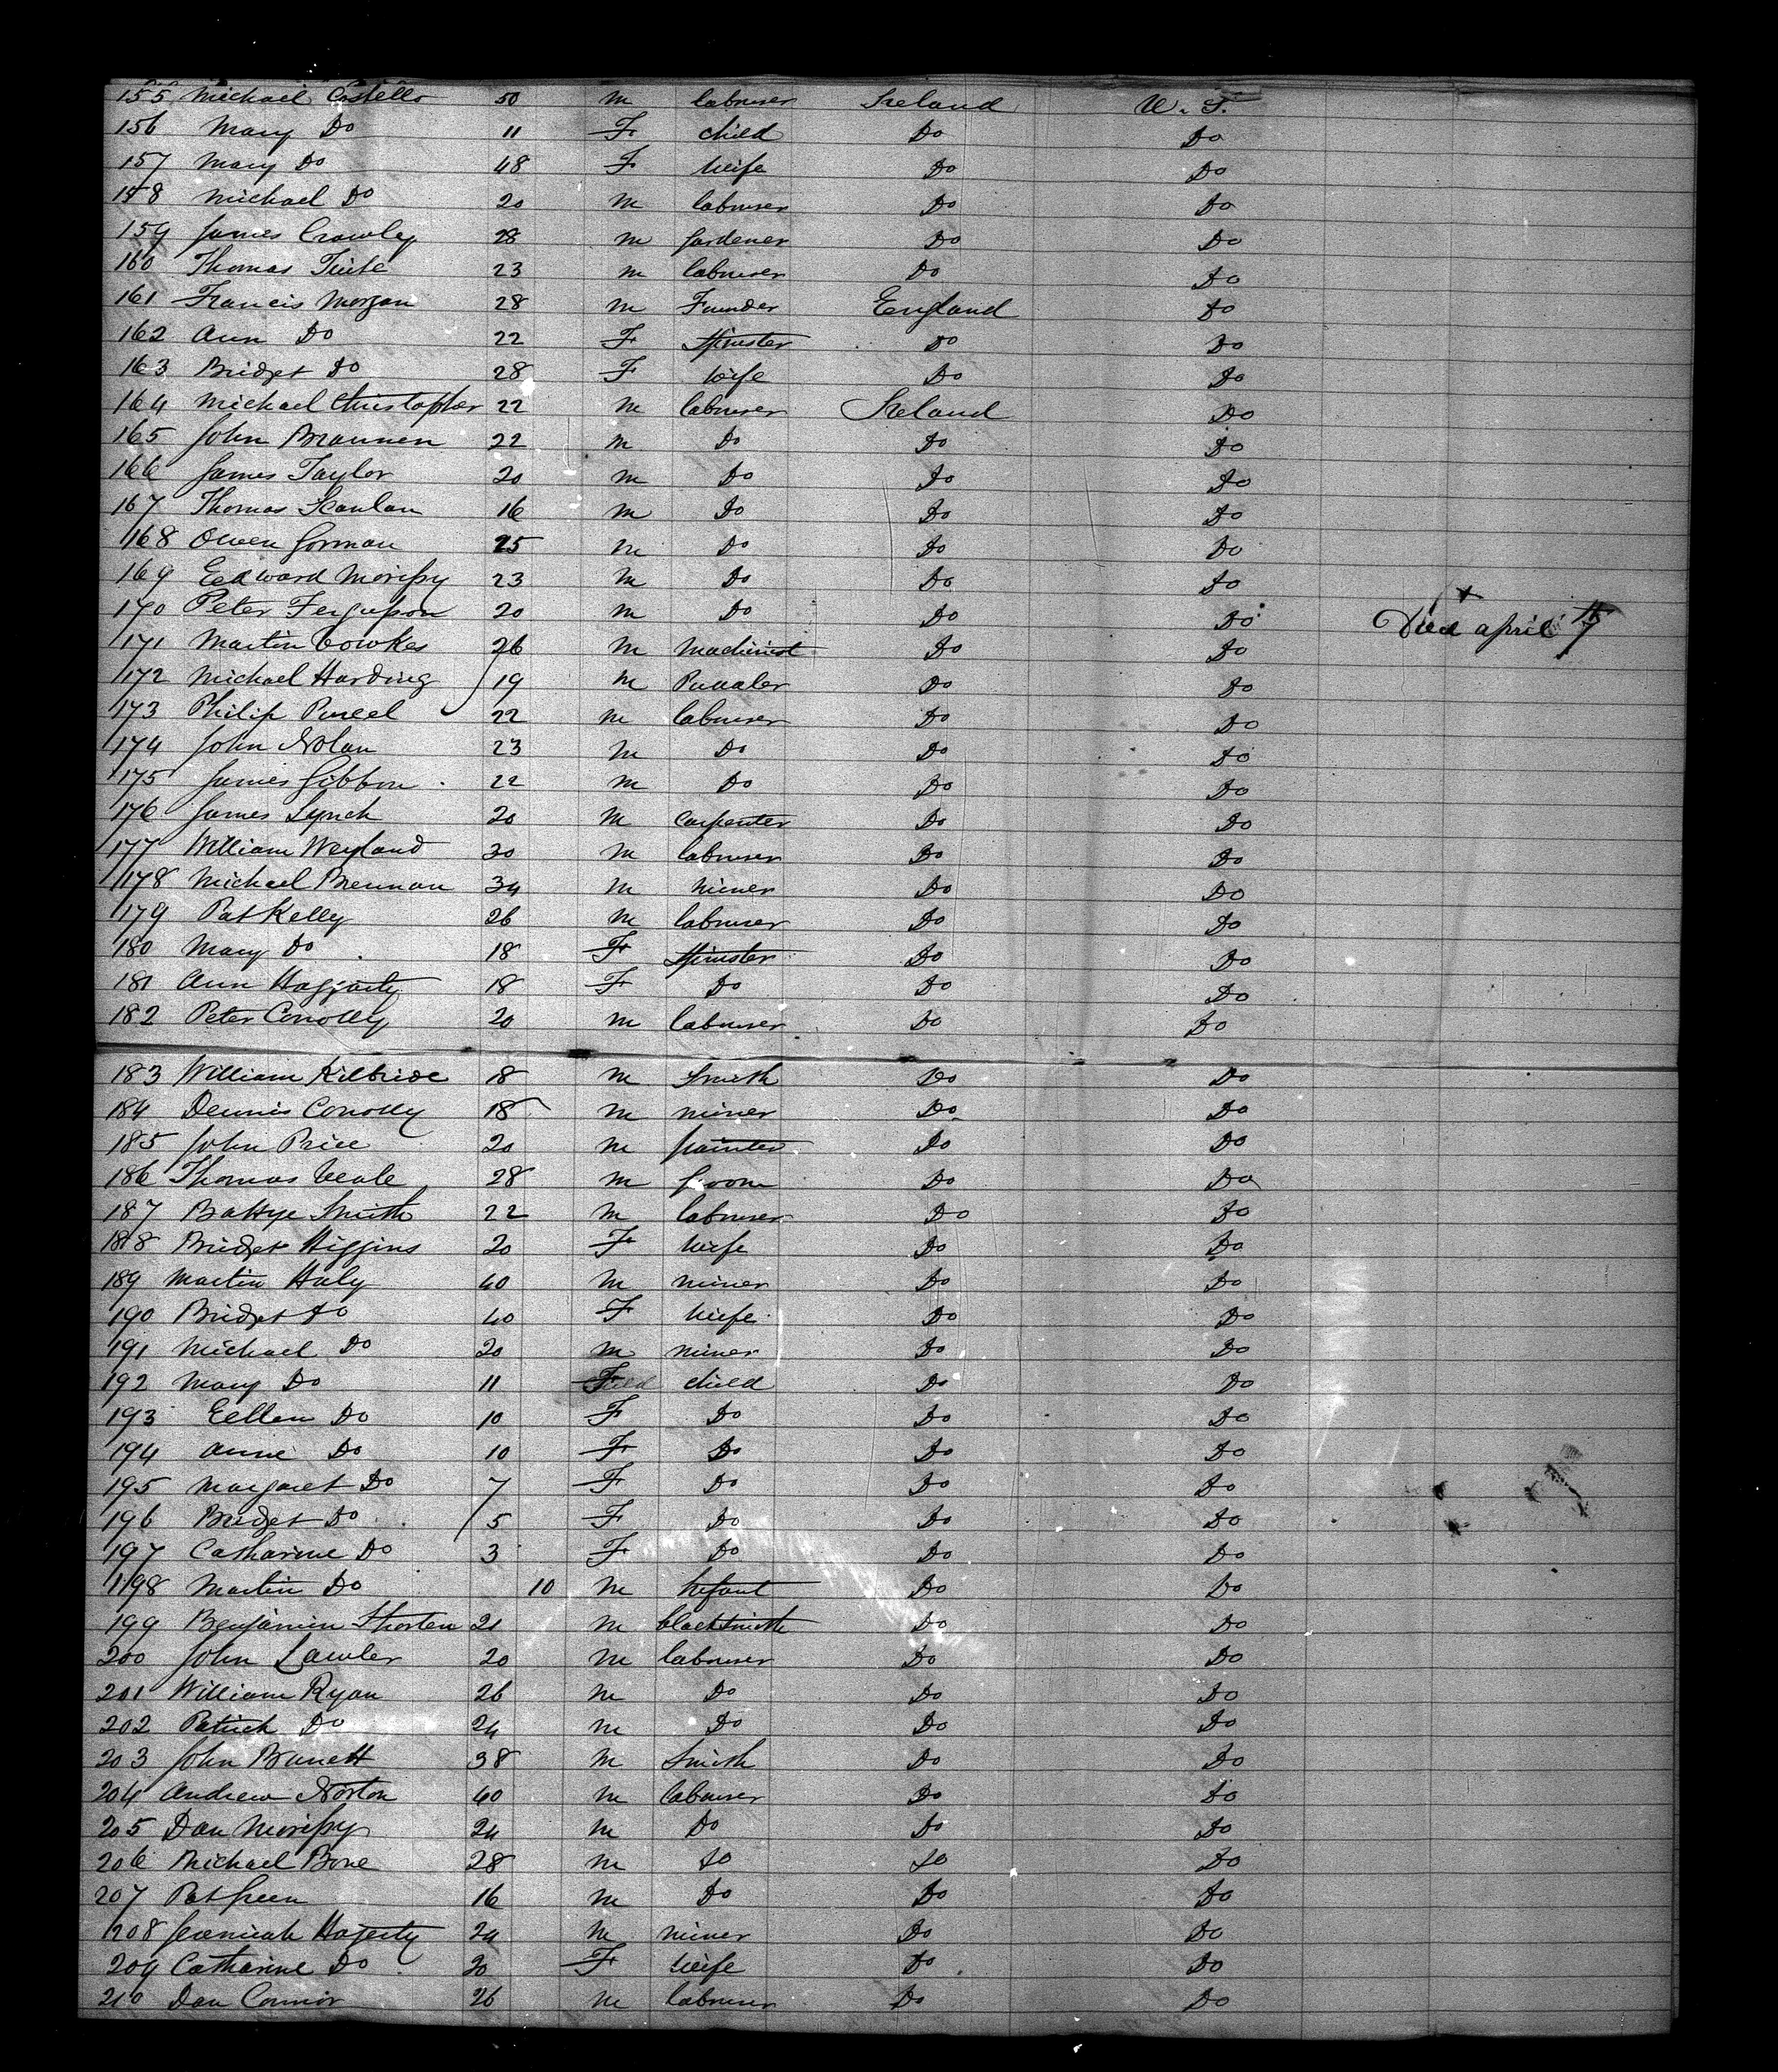 155 Michael Costello 50 m labourer Ireland U. S.
156 Mary Do 11 F child Do Do
157 Mary Do 48 F Wife Do Do
158 Michael Do 20 m labourer Do Do
159 James Crowley 28 m Gardener Do Do
160 Thomas Tuite 23 m labourer Do Do
161 Francis Morgan 28 m Founder England Do
162 Ann Do 22 F Spinster Do Do
163 Bridget Do 28 F Wife Do Do
164 Michael Christopher 22 m labourer Ireland Do
165 John Brannen 22 m Do Do Do
166 James Taylor 20 m Do Do Do
167 Thomas Scanlan 16 m Do Do Do
168 Owen Gorman 25 m Do Do Do
169 Eedward Morissy 23 m Do Do Do
170 Peter Fergusson 20 m Do Do Do Died april 15
171 Martin Cowkes 26 m Machinist Do Do
172 Michael Harding 19 m Puddler Do Do
173 Philip Purcel 22 m labourer Do Do
174 John Nolan 23 m Do Do Do
175 James Gibbon 22 m Do Do Do
176 James Lynch 20 m Carpenter Do Do
177 William Weyland 30 m labourer Do Do
178 Michael Brennan 34 m Miner Do Do
179 Pat Kelly 26 m labourer Do Do
180 Mary Do 18 F Spinster Do Do
181 Ann Haggarty 18 F Do Do Do
182 Peter Conolly 20 m labourer Do Do
183 William Kilbride 18 m Smith Do Do
184 Dennis Conolly 18 m miner Do Do
185 John Price 20 m painter Do Do
186 Thomas Veale 28 m Groom Do Do
187 Battye Smith 22 m labourer Do Do
188 Bridget Higgins 20 F Wife Do Do
189 Martin Haly 40 m miner Do Do
190 Bridget Do 40 F Wife Do Do
191 Michael Do 20 m miner Do Do
192 Mary Do 11 F child Do Do
193 Eellen Do 10 F Do Do Do
194 Anne Do 10 F Do Do Do
195 Margaret Do 7 F Do Do Do
196 Bridget Do 5 F Do Do Do
197 Catharine Do 3 F Do Do Do
198 Martin Do 10 m Infant Do Do
199 Benjamin Shorten 21 m blacksmith Do Do
200 John Lawler 20 m labourer Do Do
201 William Ryan 26 m Do Do Do
202 Patrick Do 24 m Do Do Do
203 John Burnett 38 m Smith Do Do
204 Andrew Norton 40 m labourer Do Do
205 Dan Morissy 24 m Do Do Do
206 Michael Bone 28 m Do Do Do
207 Pat Green 16 m Do Do Do
208 Jeremiah Hagerty 24 m miner Do Do
209 Catharine Do 20 F Wife Do Do
210 Dan Connor 26 m labourer Do Do